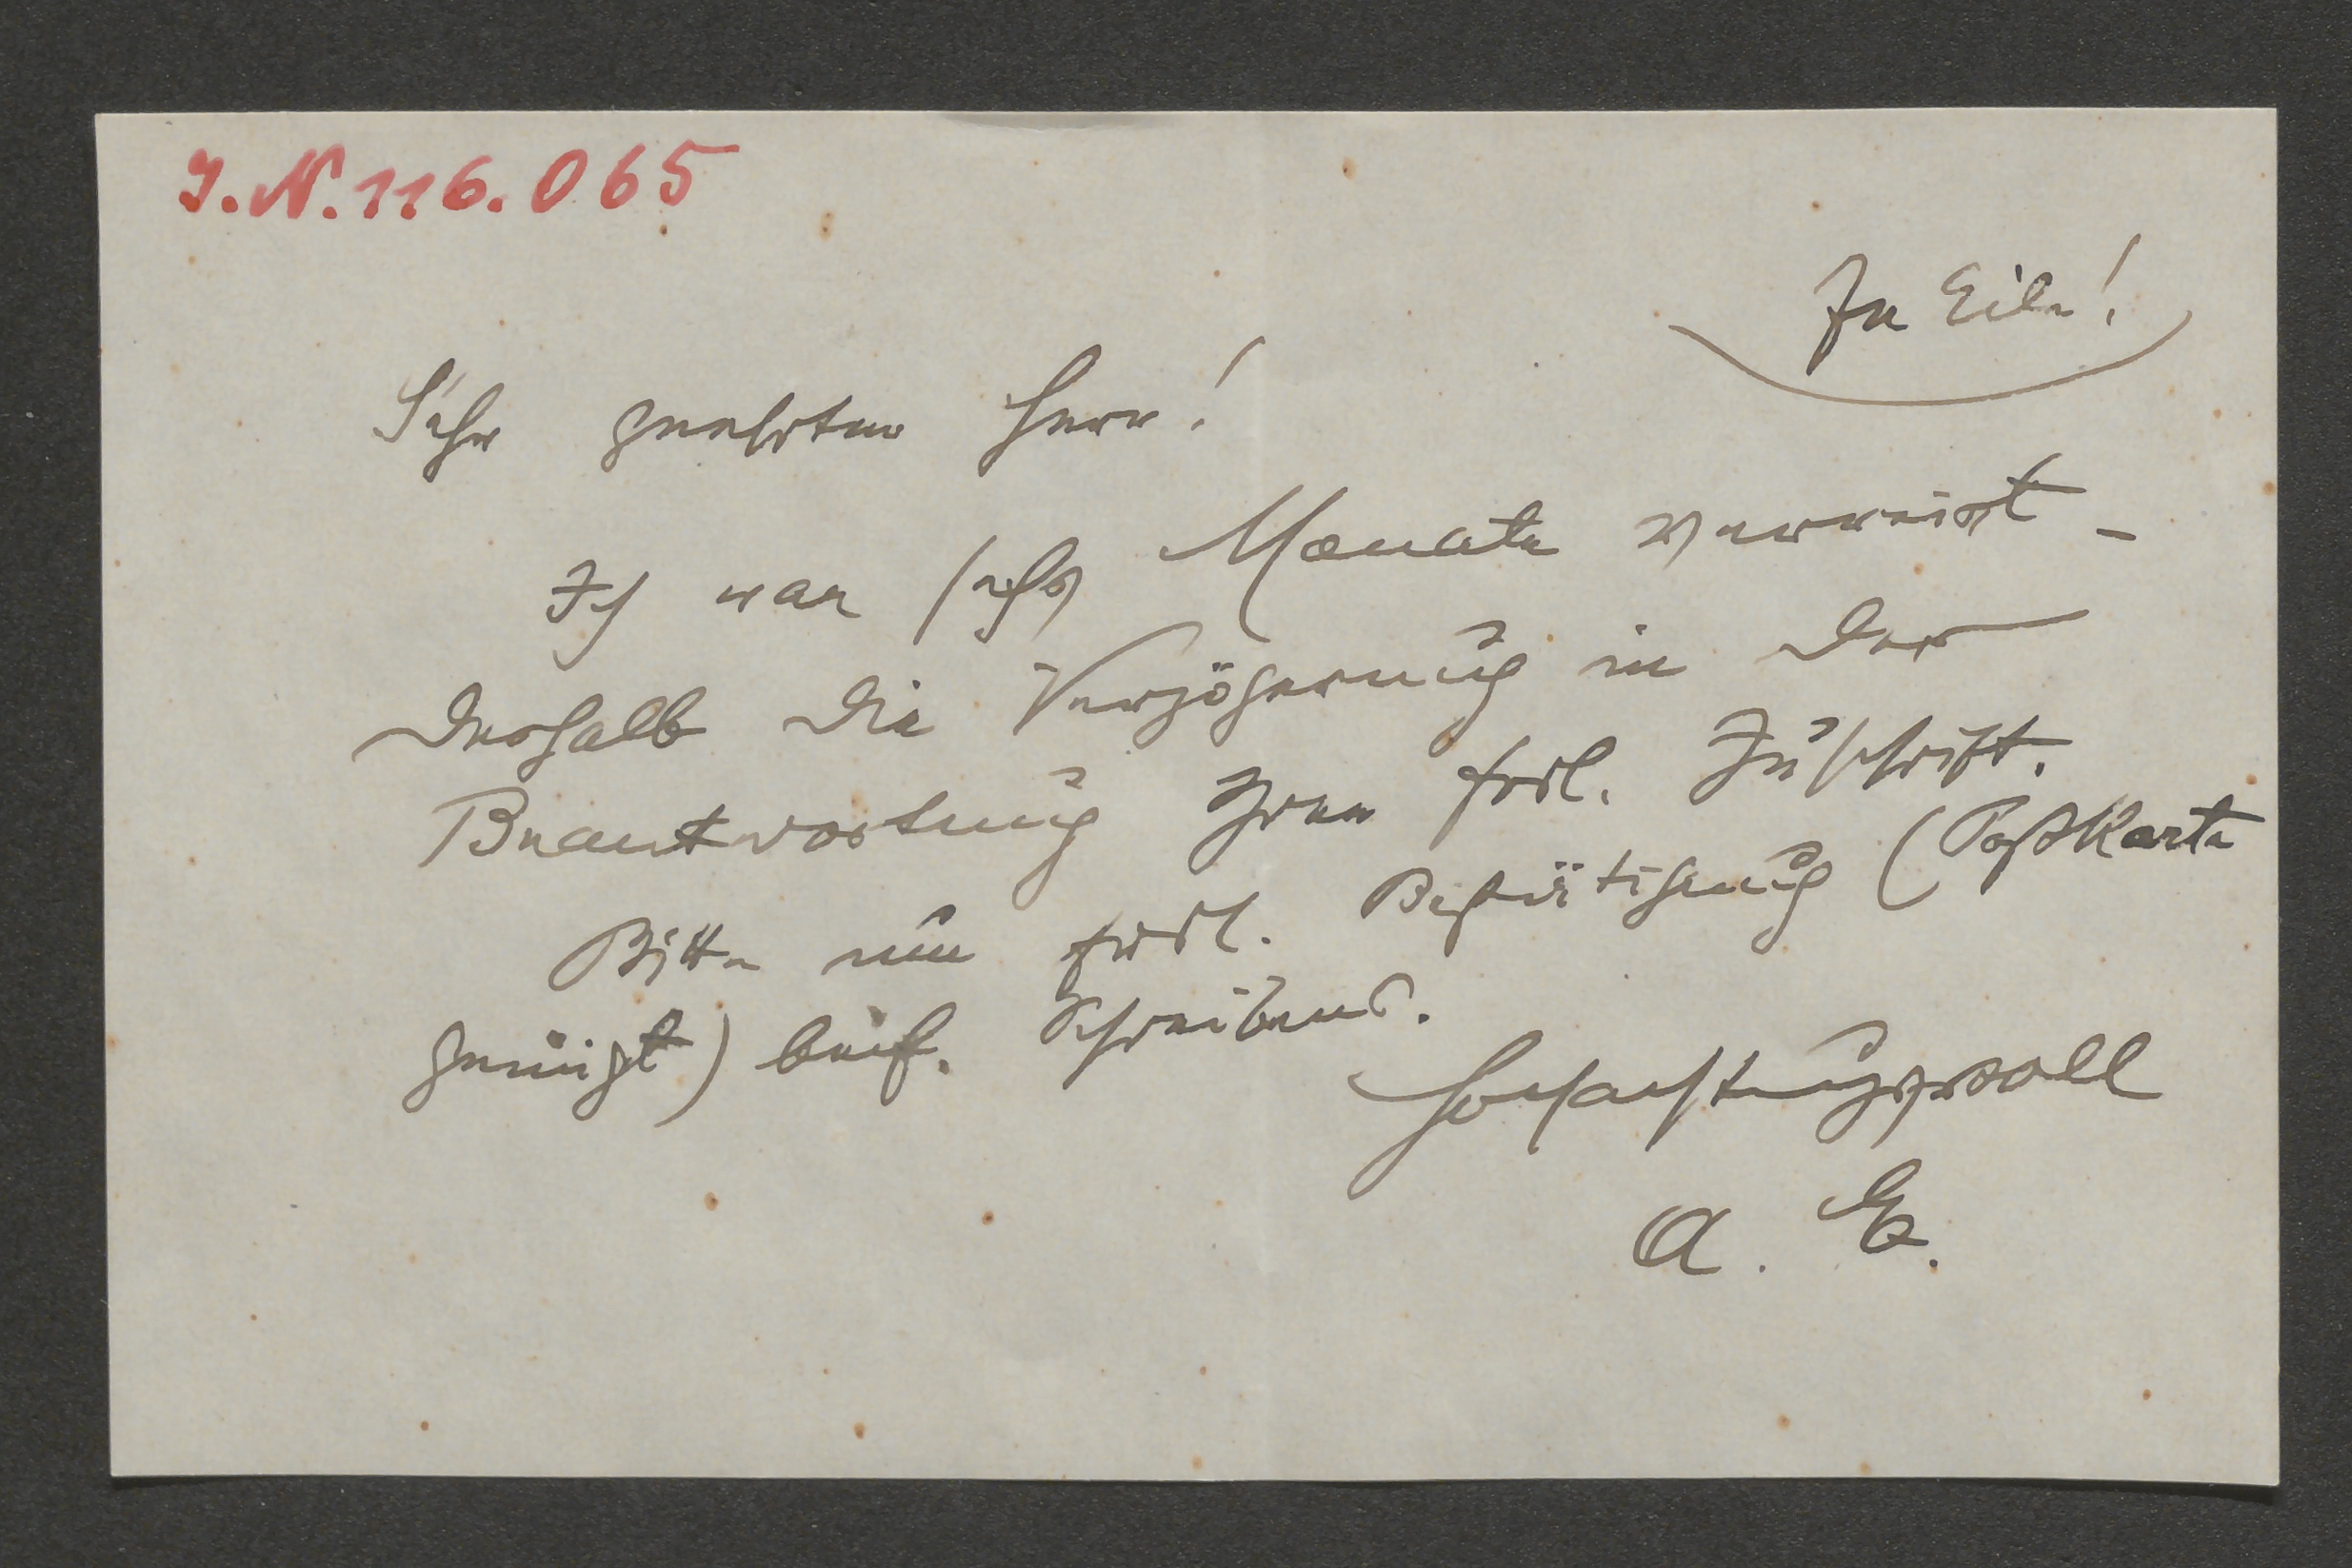 I.N. 116.065
In Eile!
Sehr geehrter Herr!
Ich war sechs Monate verreist –
deshalb die Verzögerung in der
Beantwortung Ihrer frdl. Zuschrift.
Bitte um frdl. Bestätigung (Postkarte
genügt) beif. Schreibens.
Hochachtungsvoll
A. E.